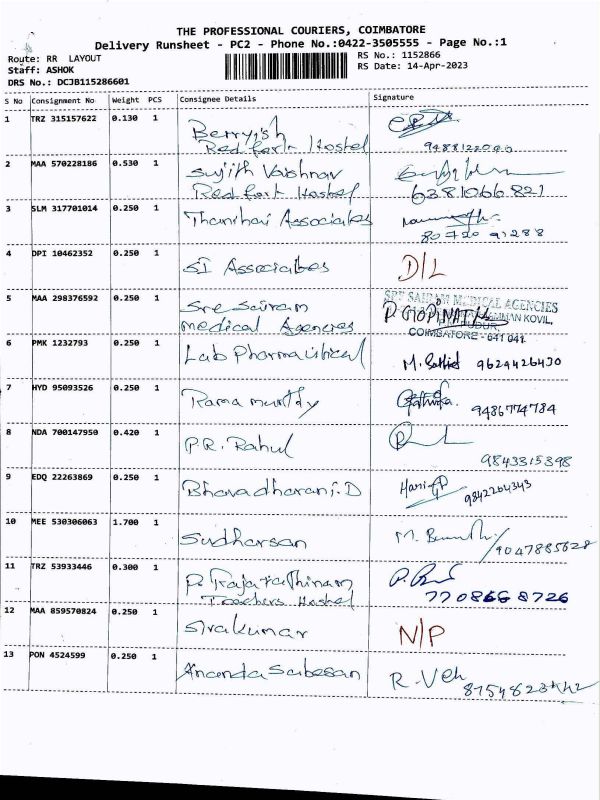 THE PROFESSIONAL COURIERS, COIMBATORE
Delivery Runsheet - PC2 - Phone No.:0422-3505555 - Page No.:1
Route: RR LAYOUT
RS No.: 1152866
Staff: ASHOK
RS Date: 14-Apr-2023
DRS No.: DCJB115286601
S No Consignment No Weight PCS Consignee Details Signature
1 TRZ 315157622 0.130 1 Berryish
Red fort Hostel
2 MAA 570228186 0.530 1 Sujith Vaishnav
Red fort Hostel 6381066821
3 SLM 317701014 0.250 1 Thanihai Associates
80720 91288
4 DPI 10462352 0.250 1 SI Associates D/L
5 MAA 298376592 0.250 1 Sre Sairam
medical Agencies
SRE SAIRAM MEDICAL AGENCIES
P. GOPINATH
COIMBATORE - 641 041.
6 PMK 1232793 0.250 1 Lab Pharmacitical
9629426430
7 HYD 95093526 0.250 1 Rama murthy
9486774784
8 NDA 700147950 0.420 1 P.R. Rahul
9843315398
9 EDQ 22263869 0.250 1 Bhavadharani.D
9842264343
10 MEE 530306063 1.700 1 Sudharsan
9047885628
11 TRZ 53933446 0.300 1 P. Rajarathinam
Teachers Hostel 7708668726
12 MAA 859570824 0.250 1 Sivakumar N/P
13 PON 4524599 0.250 1 Ananda Sabesan